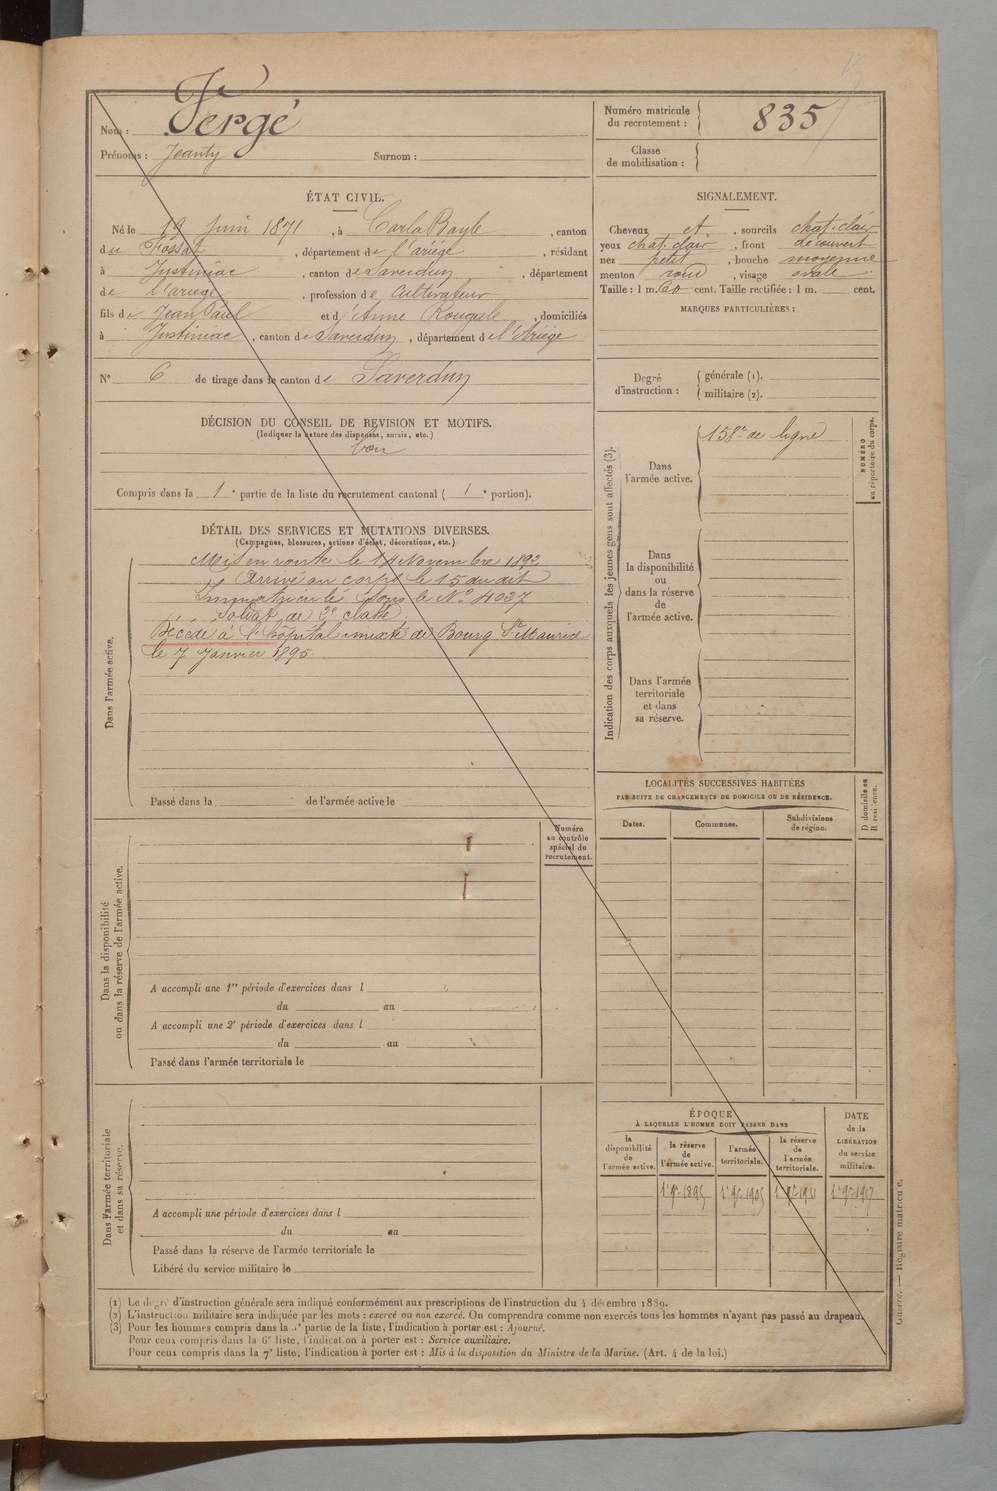 Nom : Vergé
Prénoms : Jeanty Surnom :
Numéro matricule du recrutement : 835
Classe de mobilisation :
ÉTAT CIVIL.
Né le 19 Juin 1871, à Carla Bayle, canton
du Fossat, département de l'ariége, résidant
à Justiniac, canton de Saverdun, département
de l'ariege, profession de Cultivateur
fils de Jean Paul et d'Anne Rougale, domiciliés
à Justiniac, canton de Saverdun, département de l'Ariége
N° 6 de tirage dans le canton de Saverdun
SIGNALEMENT.
Cheveux et, sourcils chat. clair
yeux chat. clair, front découvert
nez petit, bouche moyenne
menton rond, visage ovale.
Taille : 1 m. 60 cent. Taille rectifiée : 1 m. cent.
MARQUES PARTICULIÈRES :
Degré d'instruction : générale (1).
militaire (2).
DÉCISION DU CONSEIL DE REVISION ET MOTIFS.
(Indiquer la nature des dispenses, sursis, etc.)
bon
Compris dans la 1e partie de la liste du recrutement cantonal ( 1e portion).
DÉTAIL DES SERVICES ET MUTATIONS DIVERSES.
(Campagnes, blessures, actions d'éclat, décorations, etc.)
Dans l'armée active.
Mis en route le 14 Novembre 1892
Arrivé au corps le 15 du dit
Immatriculé sous le N° 4037
Soldat de 2e classe
Décédé à l'hôpital mixte de Bourg St Maurice
le 7 Janvier 1895.
Passé dans la de l'armée active le
Indication des corps auxquels les jeunes gens sont affectés (3).
NUMÉRO au répertoire du corps.
Dans l'armée active.
158e de ligne
Dans la disponibilité ou dans la réserve de l'armée active.
Dans l'armée territoriale et dans sa réserve.
LOCALITÉS SUCCESSIVES HABITÉES
PAR SUITE DE CHANGEMENTS DE DOMICILE OU DE RÉSIDENCE.
Dates. Communes. Subdivisions de région. D domicile ou R résidence.
Numéro au contrôle spécial du recrutement.
Dans la disponibilité ou dans la réserve de l'armée active.
A accompli une 1re période d'exercices dans l
du au
A accompli une 2e période d'exercices dans l
du au
Passé dans l'armée territoriale le
Dans l'armée territoriale et dans sa réserve.
A accompli une période d'exercices dans l
du au
Passé dans la réserve de l'armée territoriale le
Libéré du service militaire le
ÉPOQUE
À LAQUELLE L'HOMME DOIT PASSER DANS
la disponibilité de l'armée active. la réserve de l'armée active. l'armée territoriale. la réserve de l'armée territoriale. DATE de la LIBÉRATION du service militaire.
1er 9bre 1895 1er 9bre 1905 1er 9bre 1911 1er 9bre 1917
(1) Le degré d'instruction générale sera indiqué conformément aux prescriptions de l'instruction du 4 décembre 1889.
(2) L'instruction militaire sera indiquée par les mots : exercé ou non exercé. On comprendra comme non exercés tous les hommes n'ayant pas passé au drapeau.
(3) Pour les hommes compris dans la 5e partie de la liste, l'indication à porter est : Ajourné.
Pour ceux compris dans la 6e liste, l'indication à porter est : Service auxiliaire.
Pour ceux compris dans la 7e liste, l'indication à porter est : Mis à la disposition du Ministre de la Marine. (Art. 4 de la loi.)
Guerre. — Registre matricule.